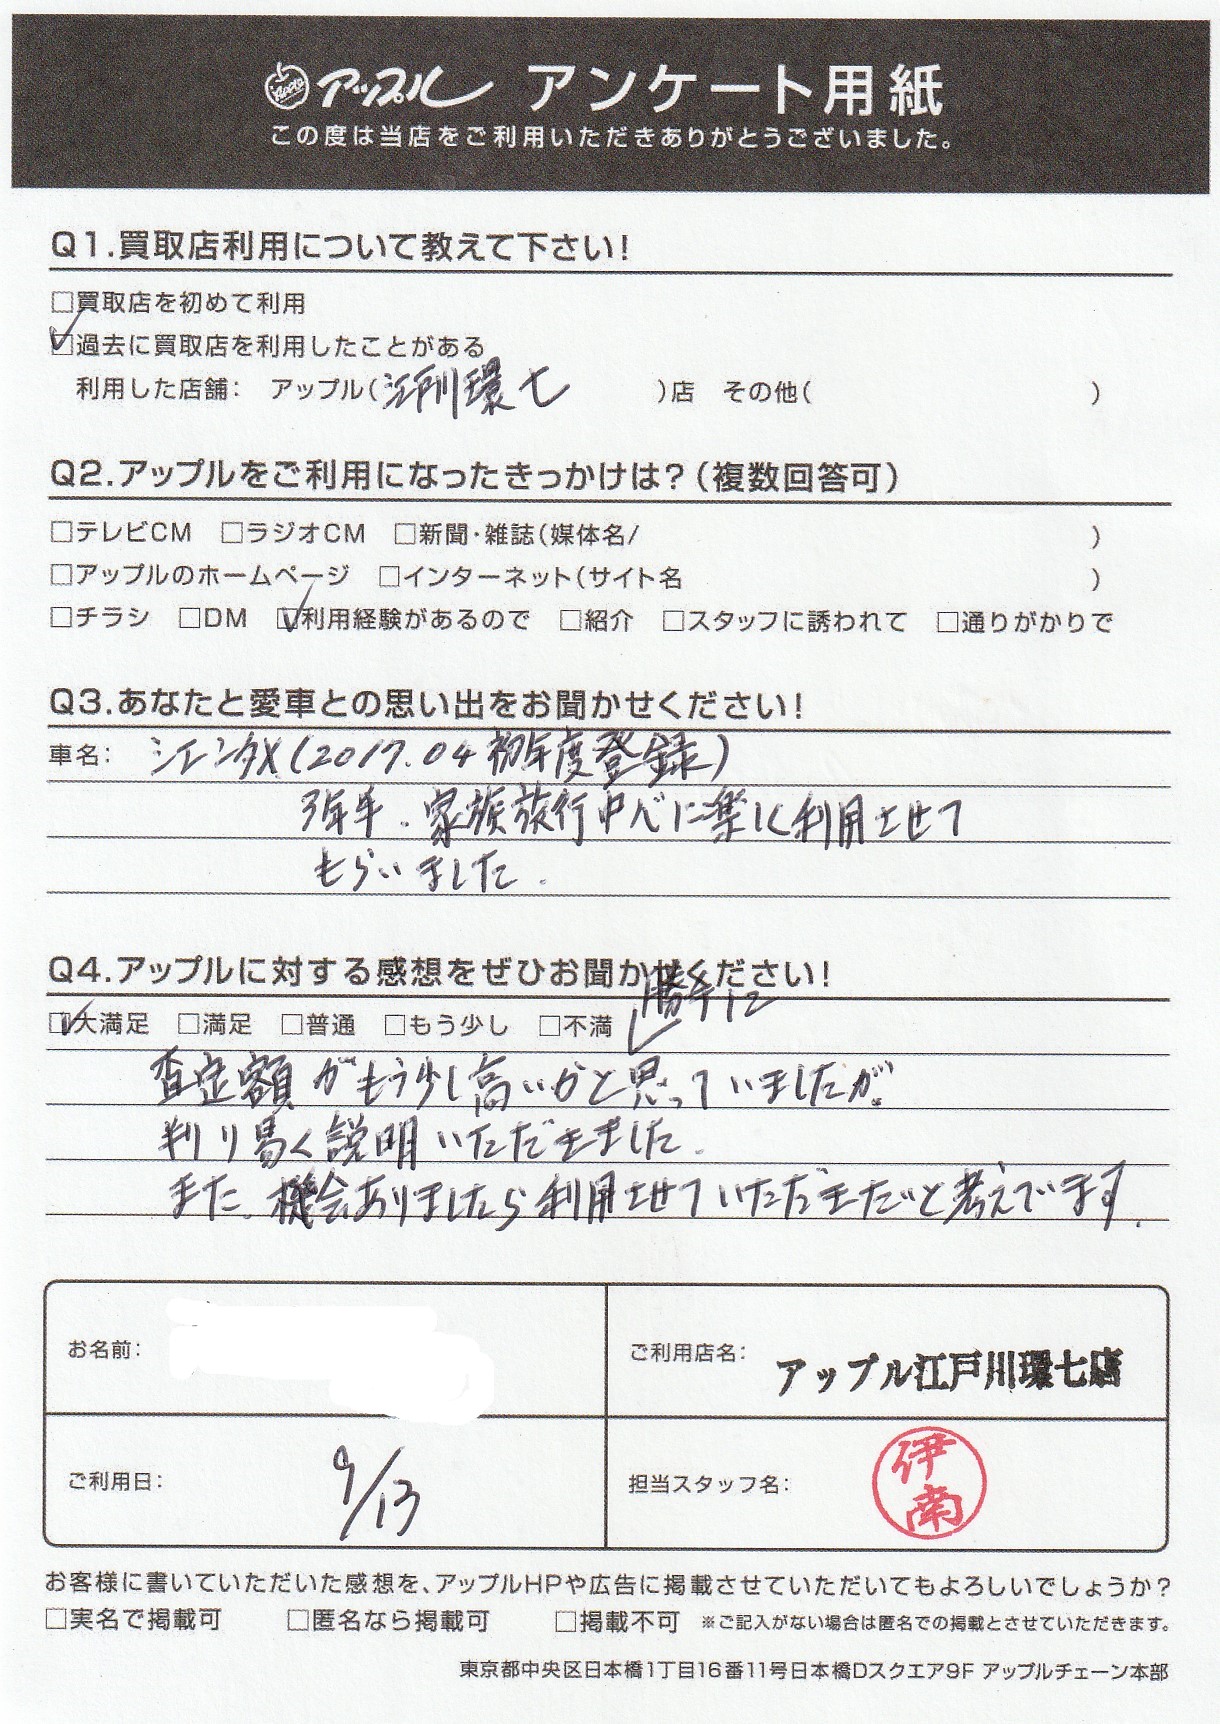 Apple アップル アンケート用紙
この度は当店をご利用いただきありがとうございました。
Q1.買取店利用について教えて下さい!
□買取店を初めて利用
☑過去に買取店を利用したことがある
利用した店舗: アップル(江戸川環七)店 その他( )
Q2.アップルをご利用になったきっかけは?(複数回答可)
□テレビCM □ラジオCM □新聞・雑誌(媒体名/ )
□アップルのホームページ □インターネット(サイト名 )
□チラシ □DM ☑利用経験があるので □紹介 □スタッフに誘われて □通りがかりで
Q3.あなたと愛車との思い出をお聞かせください!
車名: シエンタX(2017.04 初年度登録)
3年半、家族旅行中心に楽しく利用させて
もらいました。
Q4.アップルに対する感想をぜひお聞かせください!
☑大満足 □満足 □普通 □もう少し □不満
勝手に
査定額がもう少し高いかと思っていましたが、
判り易く説明いただきました。
また、機会ありましたら利用させていただきたいと考えてます。
お名前:
ご利用店名: アップル江戸川環七店
ご利用日: 9/13
担当スタッフ名: 伊南
お客様に書いていただいた感想を、アップルHPや広告に掲載させていただいてもよろしいでしょうか?
□実名で掲載可 □匿名なら掲載可 □掲載不可 ※ご記入がない場合は匿名での掲載とさせていただきます。
東京都中央区日本橋1丁目16番11号日本橋Dスクエア9F アップルチェーン本部